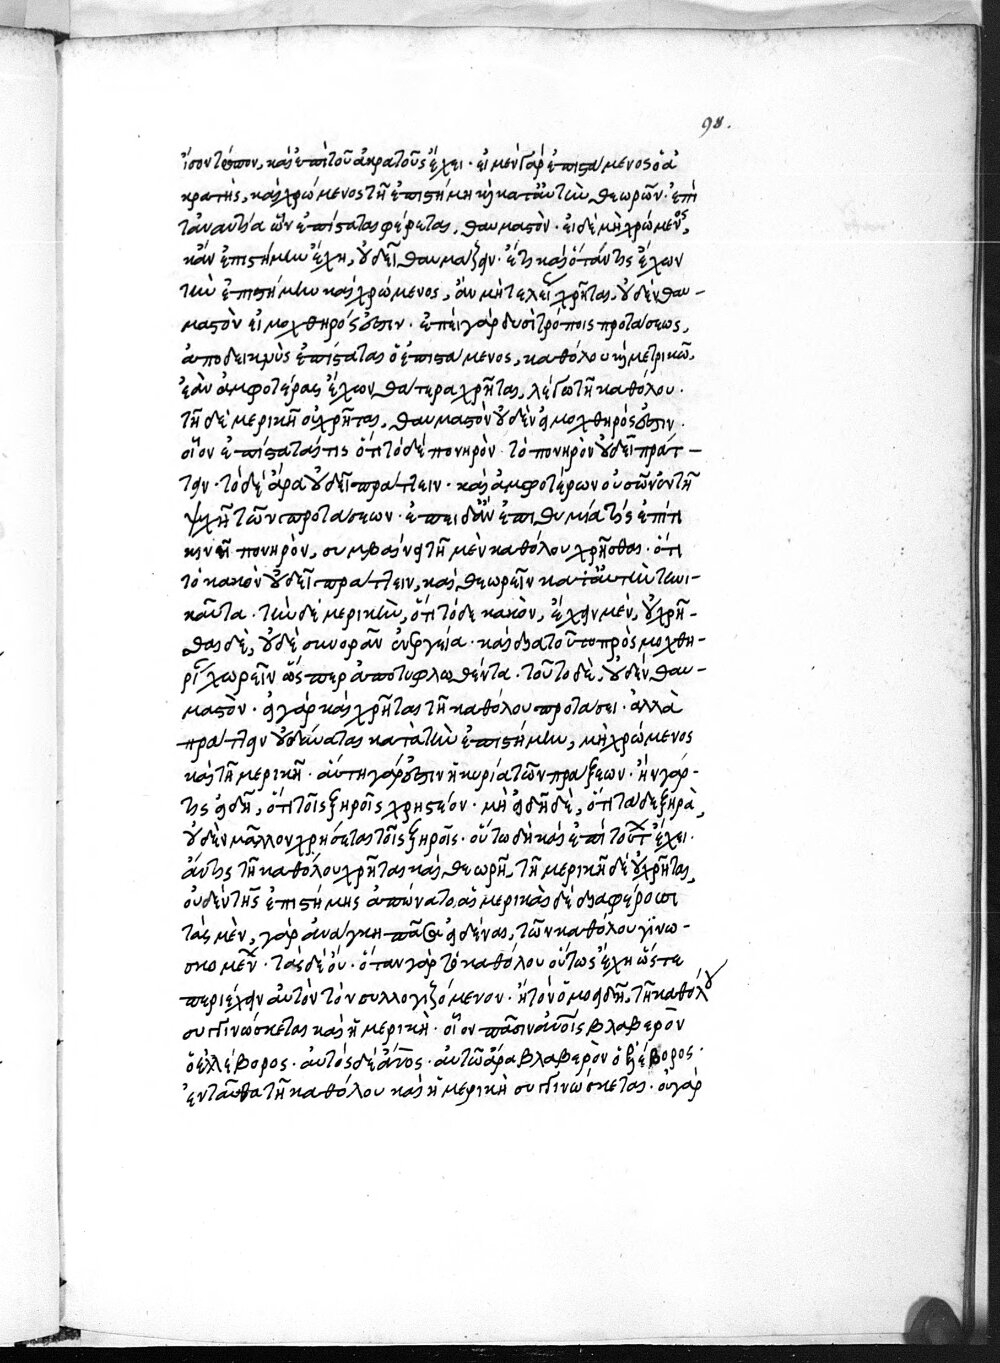 98.
ἴσον τρόπον, καὶ ἐπὶ τοῦ ἀκρατοῦς ἔχει · εἰ μὲν γὰρ ἐπιστάμενος ὁ ἀ
κρατὴς, καὶ χρώμενος τῇ ἐπιστήμῃ κὴ κατ' αὐτὴν θεωρῶν · ἐπὶ
τἀναντία ὧν ἐπίσταται φέρεται, θαυμαστὸν · εἰ δὲ μὴ χρώμενος,
κἂν ἐπιστήμην ἔχῃ, οὐ δεῖ θαυμάζειν · ἔτι καὶ ὅταν τις ἔχων
τὴν ἐπιστήμην καὶ χρώμενος, ἂν μὴ τελείᾳ χρῆται, οὐδὲν θαυ-
μαστὸν εἰ μοχθηρός ἐστιν · ἐπεὶ γὰρ δυσὶ τρόποις προτάσεως,
ἀποδεικνὺς ἐπίσταται ὁ ἐπιστάμενος, καθόλου κὴ μερικῶ,
ἐὰν ἀμφοτέρας ἔχων θατέρα χρῆται, λέγω τῇ καθόλου ·
τῇ δὲ μερικῇ οὐ χρῆται, θαυμαστὸν οὐδὲν εἰ μοχθηρός ἐστιν ·
οἷον ἐπίσταταί τις ὅτι τόδε πονηρὸν · τὸ πονηρὸν οὐ δεῖ πράτ-
τειν · τόδε ἄρα οὐ δεῖ πράττειν · καὶ ἀμφοτέρων οὐσῶν ἐν τῇ
ψυχῇ τῶν προτάσεων · ἐπειδὰν ἐπιθυμία τις ἐπί τι
κινῇ πονηρὸν, συμβαίνει τῇ μὲν καθόλου χρῆσθαι · ὅτι
τὸ κακὸν οὐ δεῖ πράττειν, καὶ θεωρεῖν κατ' αὐτὴν τηνι-
καῦτα · τὴν δὲ μερικὴν, ὅτι τόδε κακὸν, ἔχειν μὲν, οὐ χρῆ-
σθαι δὲ, οὐδὲ συνορᾶν ἐνεργείᾳ · καὶ διὰ τοῦτο πρὸς μοχθη-
ρίαν χωρεῖν ὥσπερ ἀποτυφλωθέντα · τοῦτο δὲ, οὐδὲν θαυ-
μαστὸν · εἰ γὰρ καὶ χρῆται τῇ καθόλου προτάσει · ἀλλὰ
πράττειν οὐ δύναται κατὰ τὴν ἐπιστήμην, μὴ χρώμενος
καὶ τῇ μερικῇ · αὕτη γάρ ἐστιν ἡ κυρία τῶν πράξεων · ἢν γάρ-
τις εἰδῇ, ὅτι τοῖς ξηροῖς χρηστέον · μὴ εἰδῇ δὲ, ὅτι τάδε ξηρὰ,
οὐδὲν μᾶλλον χρήσεται τοῖς ξηροῖς · οὕτω δὴ καὶ ἐπὶ τούτ ἔχει ·
ἄν τις τῇ καθόλου χρῆται καὶ θεωρῇ, τῇ μερικῇ δὲ οὐ χρῆται,
οὐδὲν τῆς ἐπιστήμης ἀπώνατο, αἱ μερικαὶ δὲ διαφέρουσι
τὰς μὲν, γὰρ ἀνάγκη πᾶσα εἰδέναι, τῶν καθόλου γινω-
σκομέν · τὰς δὲ οὔ · ὅταν γὰρ τὸ καθόλου οὕτως ἔχῃ ὥστε
περιέχειν αὐτὸν τὸν συλλογιζόμενον · ἢ τὸν ὁμοειδῆ, τῇ καθόλου
συγγινώσκεται καὶ ἡ μερικὴ · οἷον πᾶσιν ἀνοις βλαβερὸν
ὁ ἐλλέβορος · αὐτὸς δὲ ἄνος · αὐτῶ ἄρα βλαβερὸν ὁ ἐλέβορος ·
ἐνταῦθα τῇ καθόλου καὶ ἡ μερικὴ συγγινώσκεται · οὐ γὰρ